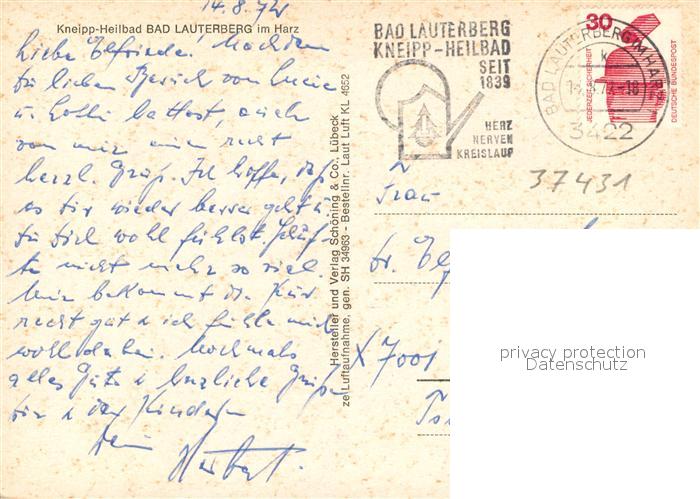 14.8.74
Kneipp-Heilbad BAD LAUTERBERG im Harz
Liebe Elfriede! Nachdem
Du lieben Besuch von Lucie
u. hattest, auch
von mir einen recht
herzl. Gruß. Ich hoffe, daß
es Dir wieder besser geht u.
Du Dich wohl fühlst.
nicht mehr so viel.
Mir bekommt die Kur
recht gut u ich fühle mich
wohl dabei. Nochmals
alles Gute u herzliche Grüße
Dir u den Kindern
Dein Herbert.
Hersteller und Verlag Schöning & Co., Lübeck
zel Luftaufnahme, gen. SH 34963 - Bestellnr. Laut Luft KL 4652
BAD LAUTERBERG
KNEIPP-HEILBAD
SEIT
1839
HERZ
NERVEN
KREISLAUF
BAD LAUTERBERG IM HARZ
k
3422
30
JEDERZEIT SICHERHEIT
DEUTSCHE BUNDESPOST
37431
Frau
X 7001
privacy protection
Datenschutz